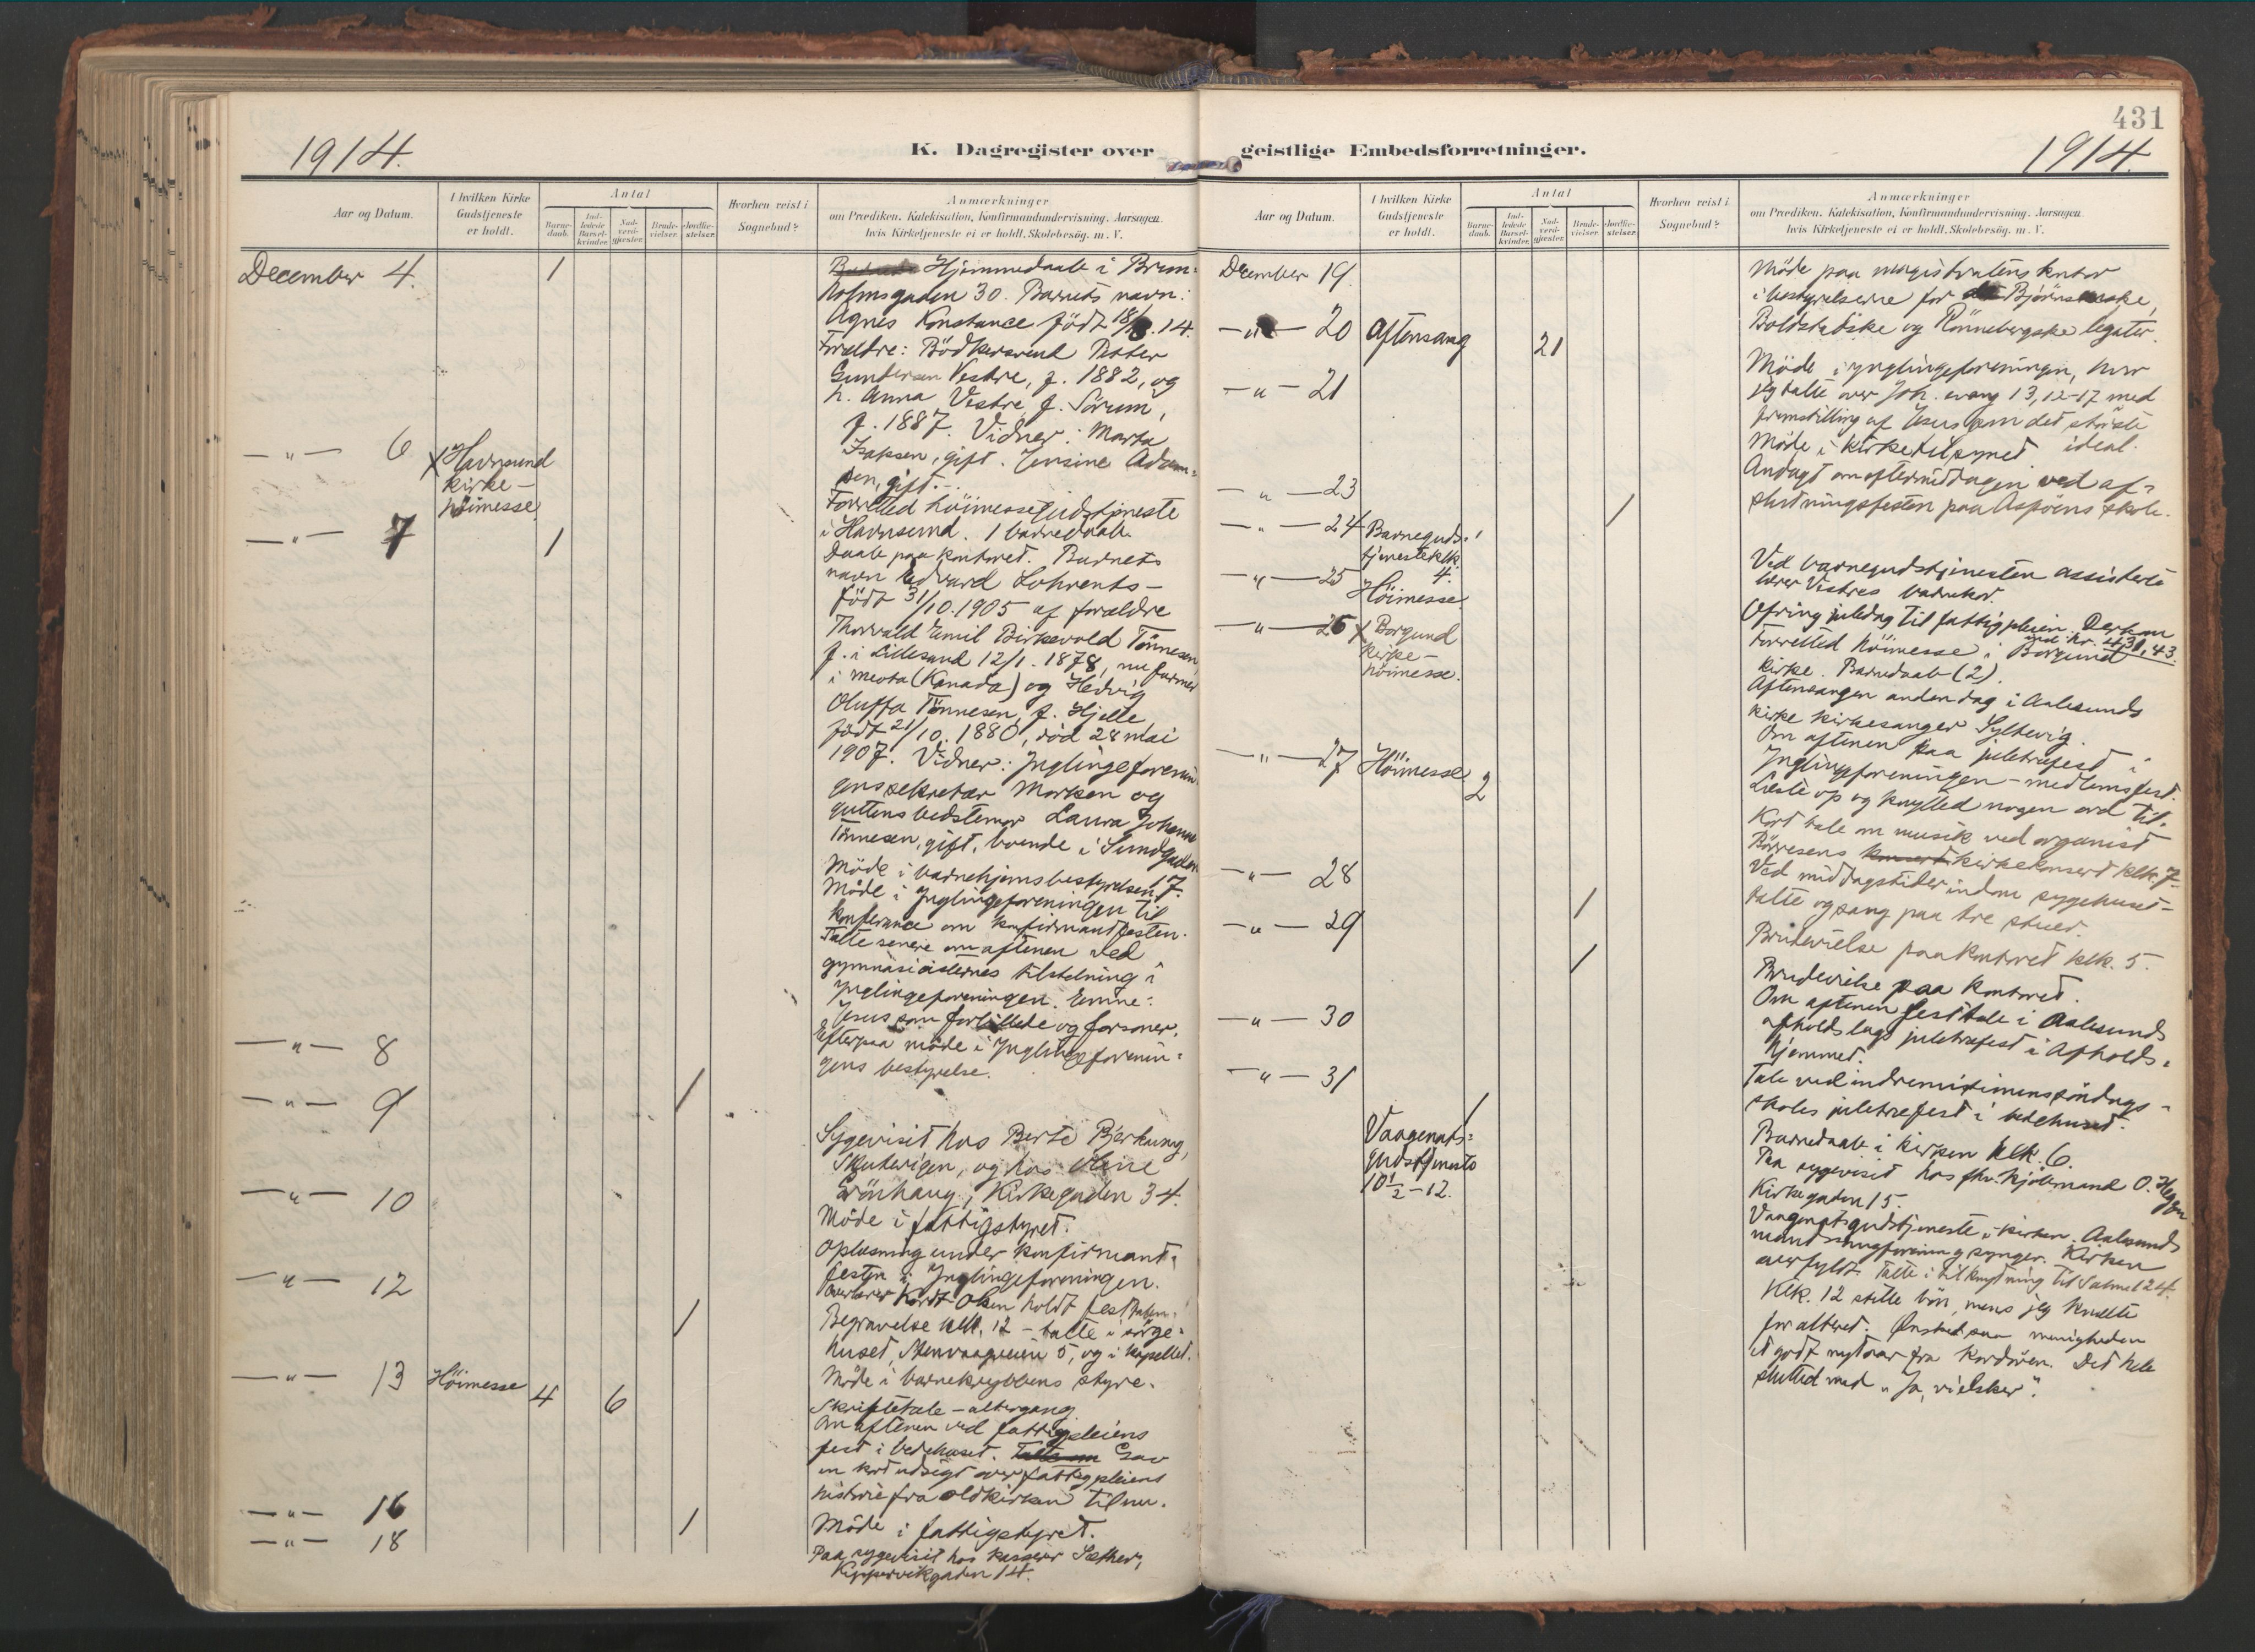 431
1914.
K. Dagregister over
geistlige Embedsforretninger.
1914.
Aar og Datum.
I hvilken Kirke
Gudstjeneste
er holdt.
Antal
Barne-
daab.
Ind-
ledede
Barsel-
kvinder.
Nad-
verd-
gjester.
Brude-
vielser.
Jordfæ-
stelser.
Hvorhen reist i
Sognebud?
Anmærkninger
om Prædiken. Katekisation, Konfirmandundervisning. Aarsagen
hvis Kirketjeneste ei er holdt. Skolebesög. m. V.
December 4.
1
Hjemmedaab i Brun-
holmsgaden 30. Barnets navn:
Agnes Konstance født 18/ .14.
Forældre: Bödkersvend Petter
Gundersen Vestre, f. 1882, og
h. Anna Vestre f. Sörum,
f. 1887. Vidner: Marta
Isaksen, gift. Jensine Adam-
sen, gift.
— " — 6
x Havnsund
kirke –
höimesse
Forretted höimessegudstjeneste
i Havnsund. 1 barnedaab.
— " — 7
1
Daab paa kontoret. Barnets
navn Edvard Lohrents –
födt 31/10.1905 af forældre
Thorvald Emil Birkevold Tönnesen
f. i Lillesand 12/1. 1878, nu farmer
i Meota (Kanada) og Hedvig
Oluffa Tönnesen, f. Hjelle
födt 21/10. 1880, död 28 mai
1907. Vidner: Ynglingeforenin-
gens sekretær Morken og
guttens bedstemor Laura Johanne
Tönnesen, gift, boende i Sundgaden
17.
Möde i barnehjemsbestyrelsen.
Möde i Ynglingeforeningen til
konferance om konfirmantfesten.
Talte senere om aftenen ved
gymnasiasternes tilstelning i
Ynglingeforeningen. Emne:
Jesus som forbillede og forsoner.
— " — 8
Efterpaa möde i Ynglingeforenin-
gens bestyrelse.
— " — 9
1
Sygevisit hos Berte Bjerkung,
Skutevigen, og hos Oline
Grönhaug, Kirkegaden 34.
— " — 10
Möde i fattigstyret.
Oplæsning under konfirmant-
festen i Ynglingeforeningen.
Overlærer Kordt Olsen holdt festtalen.
— " — 12
1
Begravelse klk. 12 – talte i sörge-
huset, Stenvaagveien 5, og i kapellet.
Möde i barnekrybbens styre.
— " — 13
Höimesse
4
6
Skriftetale – altergang
Om aftenen ved fattigpleiens
fest i bedehuset. Talte om Gav
en kort udsigt over fattigpleiens
historie fra oldkirken til nu.
— " — 16
1
Möde i fattigstyret.
— " — 18
Paa sygevisit hos kasserer Sæther,
Kippervikgaden 14.
Aar og Datum.
I hvilken Kirke
Gudstjeneste
er holdt.
Antal
Barne-
daab.
Ind-
ledede
Barsel-
kvinder.
Nad-
verd-
gjester.
Brude-
vielser.
Jordfæ-
stelser.
Hvorhen reist i
Sognebud?
Anmærkninger
om Prædiken. Katekisation, Konfirmandundervisning. Aarsagen
hvis Kirketjeneste ei er holdt. Skolebesög. m. V.
December 19.
Möde paa magistratens kontor
i bestyrelserne for Björnsonske,
Boldstadske og Rönnebergske legater.
— " — 20
Aftensang
21
Möde i ynglingeforeningen, hvor
jeg talte over Joh. evang 13, 12-17 med
fremstilling af Jesus som det störste
ideal.
— " — 21
Möde i kirketilsynet
Andagt om eftermiddagen ved af-
slutningsfesten paa Aspöens skole.
— " — 23
1
— " — 24
Barneguds-
tjeneste klk.
4.
Ved barnegudstjenesten assisterte
lærer Vestres barnekor.
— " — 25
Höimesse.
Ofring juledag til fattigpleien. Derhen
ind kr. 431,43.
— " — 26
x Borgund
kirke –
höimesse.
Forretted höimesse i Borgund
kirke. Barnedaab (2).
Aftensangen anden dag i Aalesunds
kirke kirkesanger Syltevig.
Om aftenen paa juletræfest i
Ynglingeforeningen – medlemsfest.
Læste op og knytted nogen ord til.
— " — 27
Höimesse
2
Kort tale om musik ved organist
Börresens konsert kirkekonsert klk. 7.
— " — 28
1
Ved middagstider indom sygehuset –
talte og sang paa tre stuer.
Brudevielse paa kontoret klk. 5.
— " — 29
1
Brudevielse paa kontoret.
Om aftenen festtale i Aalesunds
afholdslags juletræfest i Afholds-
hjemmet.
— " — 30
Tale ved indremissionens söndags-
skoles juletræfest i bedehuset.
— " — 31
1
Vaagenats-
gudstjeneste
10½ – 12.
Barnedaab i kirken klk. 6.
Paa sygevisit hos fhv. hjölmand O. Heggen
Kirkegaden 15.
Vaagenatsgudstjeneste i kirken. Aalesunds
mandssangforening synger. Kirken
overfyldt. Talte i tilknytning til Salme 124.
Klk. 12 stille bön, mens jeg knælte
for alteret. Ønsket saa menigheden
et godt nytaar fra kordören. Det hele
slutted med „Ja, vi elsker".